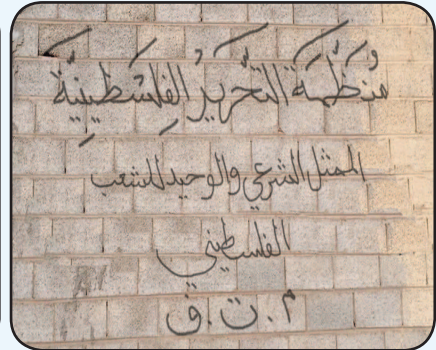 مُنَظَّمَة التَّحْرِيرُ الفِلَسْطِينِيَّة
الممثل الشرعي والوحيد للشعب
الفلسطيني
م.ت.ف